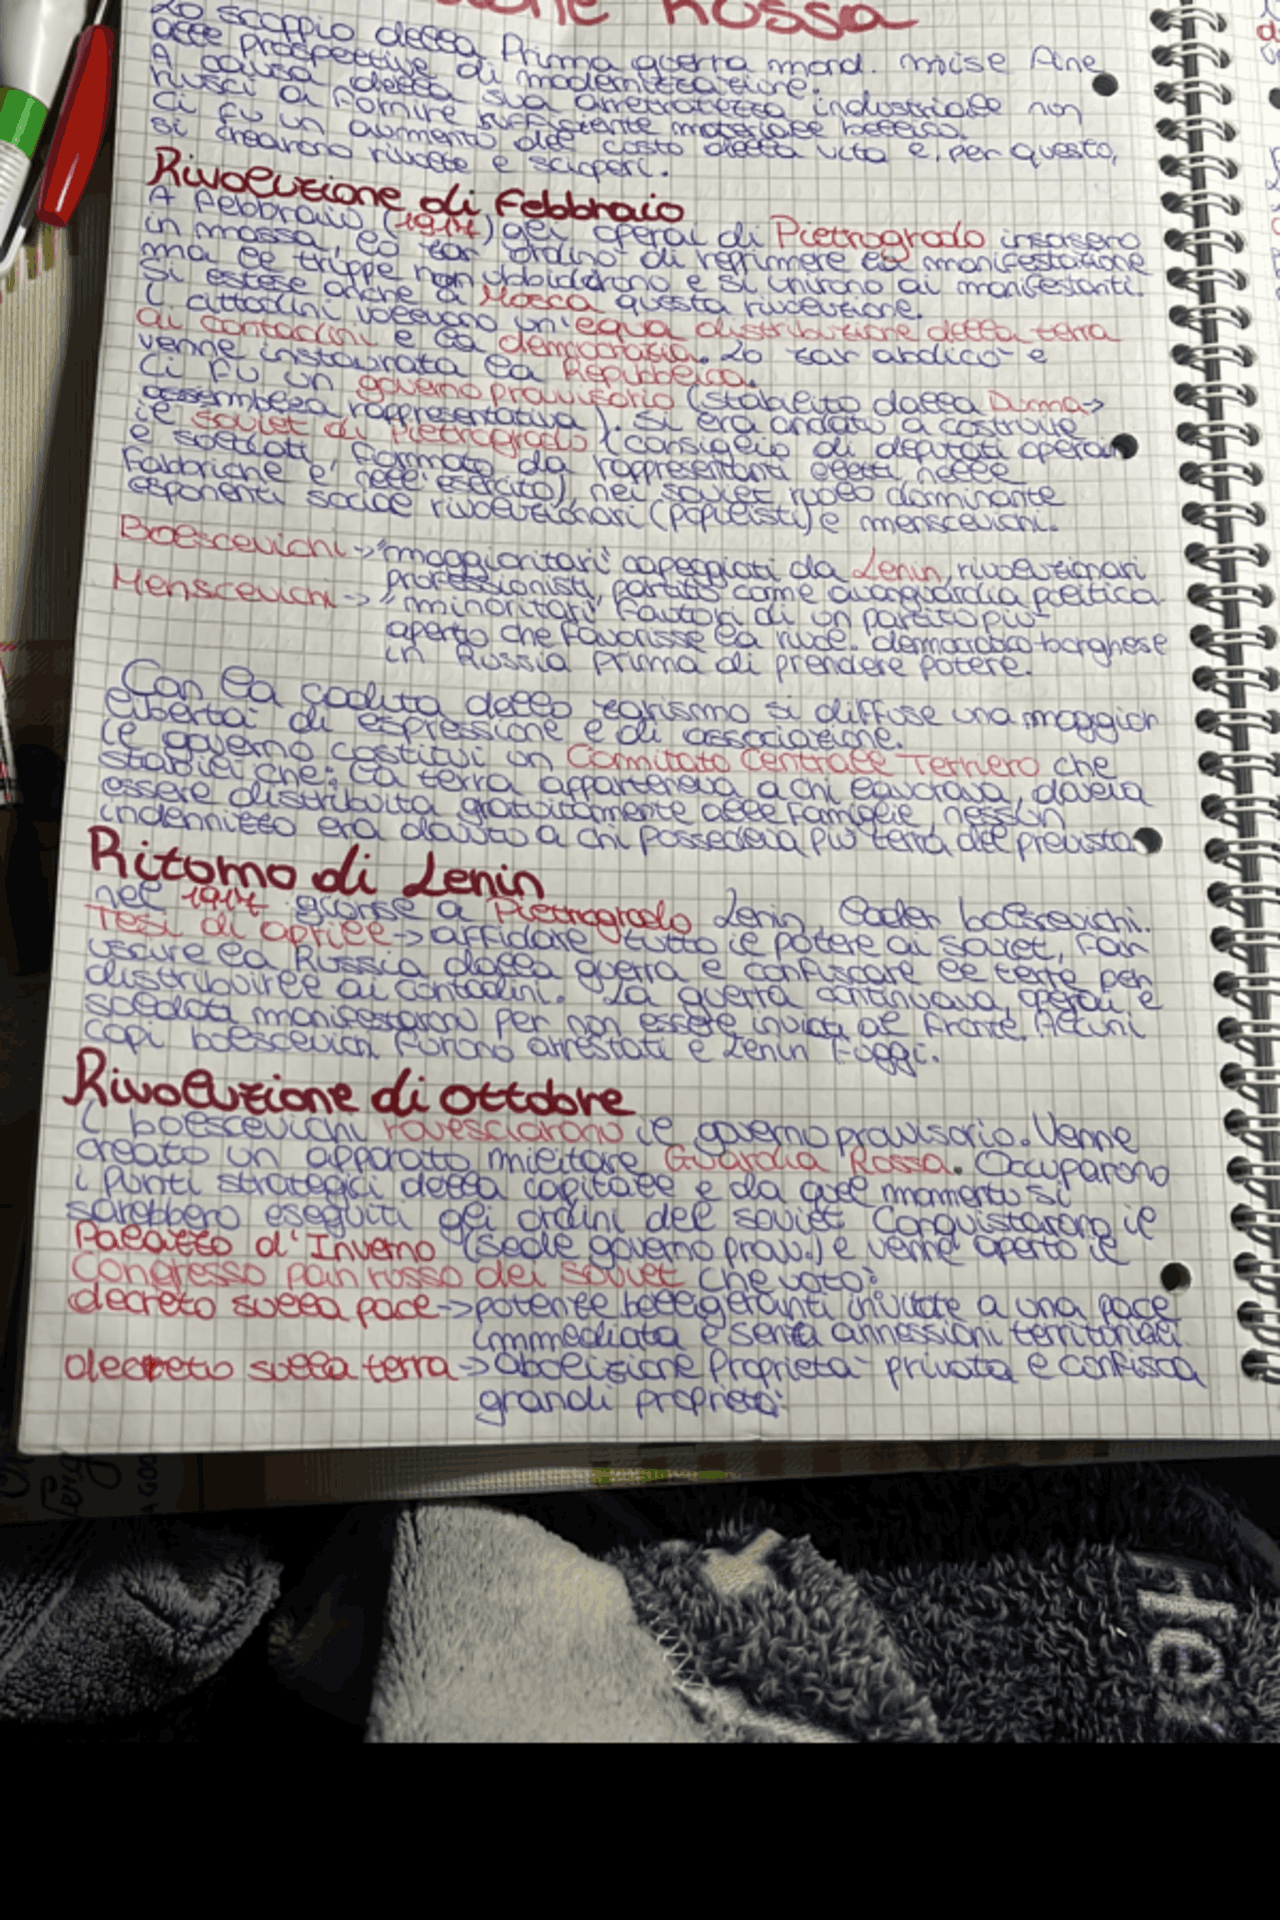 Rossa
Lo scoppio della Prima guerra mond. mise fine
alle prospettive di modernizzazione.
A causa della sua arretratezza industriale non
riuscì a fornire sufficiente materiale bellico.
Ci fu un aumento del costo della vita e, per questo,
si crearono rivolte e scioperi.
Rivoluzione di febbraio
A febbraio (1917) gli operai di Pietrogrado insosero
in massa, lo zar ordinò di reprimere la manifestazione
ma le truppe non ubbidirono e si unirono ai manifestanti.
Si estese anche a Mosca questa rivoluzione.
I cittadini volevano un'equa distribuzione della terra
ai contadini e la democrazia. Lo zar abdicò e
venne instaurata la Repubblica.
Ci fu un governo provvisorio (stabilito dalla Duma->
assemblea rappresentativa). Si era andato a costruire
il soviet di Pietrogrado (consiglio di deputati operai
e soldati, formato da rappresentanti eletti nelle
fabbriche e nell'esercito), nei soviet ruolo dominante
esponenti social rivoluzionari (populisti) e menscevichi.
Bolscevichi -> "maggioritari" capeggiati da Lenin, rivoluzionari
professionisti, partito come avanguardia politica.
Menscevichi -> "minoritari" fautori di un partito più
aperto che favorisse la rivol. democratico-borghese
in Russia prima di prendere potere.
Con la caduta dello zarismo si diffuse una maggior
libertà di espressione e di associazione.
Il governo costituì un Comitato Centrale Terriero che
stabilì che: la terra apparteneva a chi lavorava, doveva
essere distribuita gratuitamente alle famiglie, nessun
indennizzo era dovuto a chi possedeva più terra del previsto.
Ritorno di Lenin
nel 1917 giunse a Pietrogrado Lenin, leader bolscevichi.
Tesi di aprile -> affidare tutto il potere ai soviet, far
uscire la Russia dalla guerra e confiscare le terre per
distribuirle ai contadini. La guerra continuava, operai e
soldati manifestarono per non essere inviati al fronte. Alcuni
capi bolscevichi furono arrestati e Lenin fuggì.
Rivoluzione di ottobre
I bolscevichi rovesciarono il governo provvisorio. Venne
creato un apparato militare Guardia Rossa. Occuparono
i punti strategici della capitale e da quel momento si
sarebbero eseguiti gli ordini del soviet. Conquistarono il
Palazzo d'Inverno (sede governo provv.) e venne aperto il
Congresso pan russo dei soviet che votò:
decreto sulla pace -> potenze belligeranti invitate a una pace
immediata e senza annessioni territoriali
decreto sulla terra -> abolizione proprietà privata e confisca
grandi proprietà